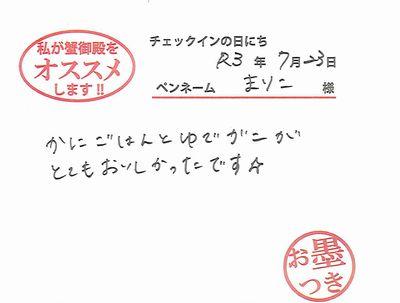 私が蟹御殿を
オススメ
します!!
チェックインの日にち
R3年7月23日
ペンネーム まりこ 様
かにごはんとゆでがニが
とてもおいしかったです☆
お墨
つき